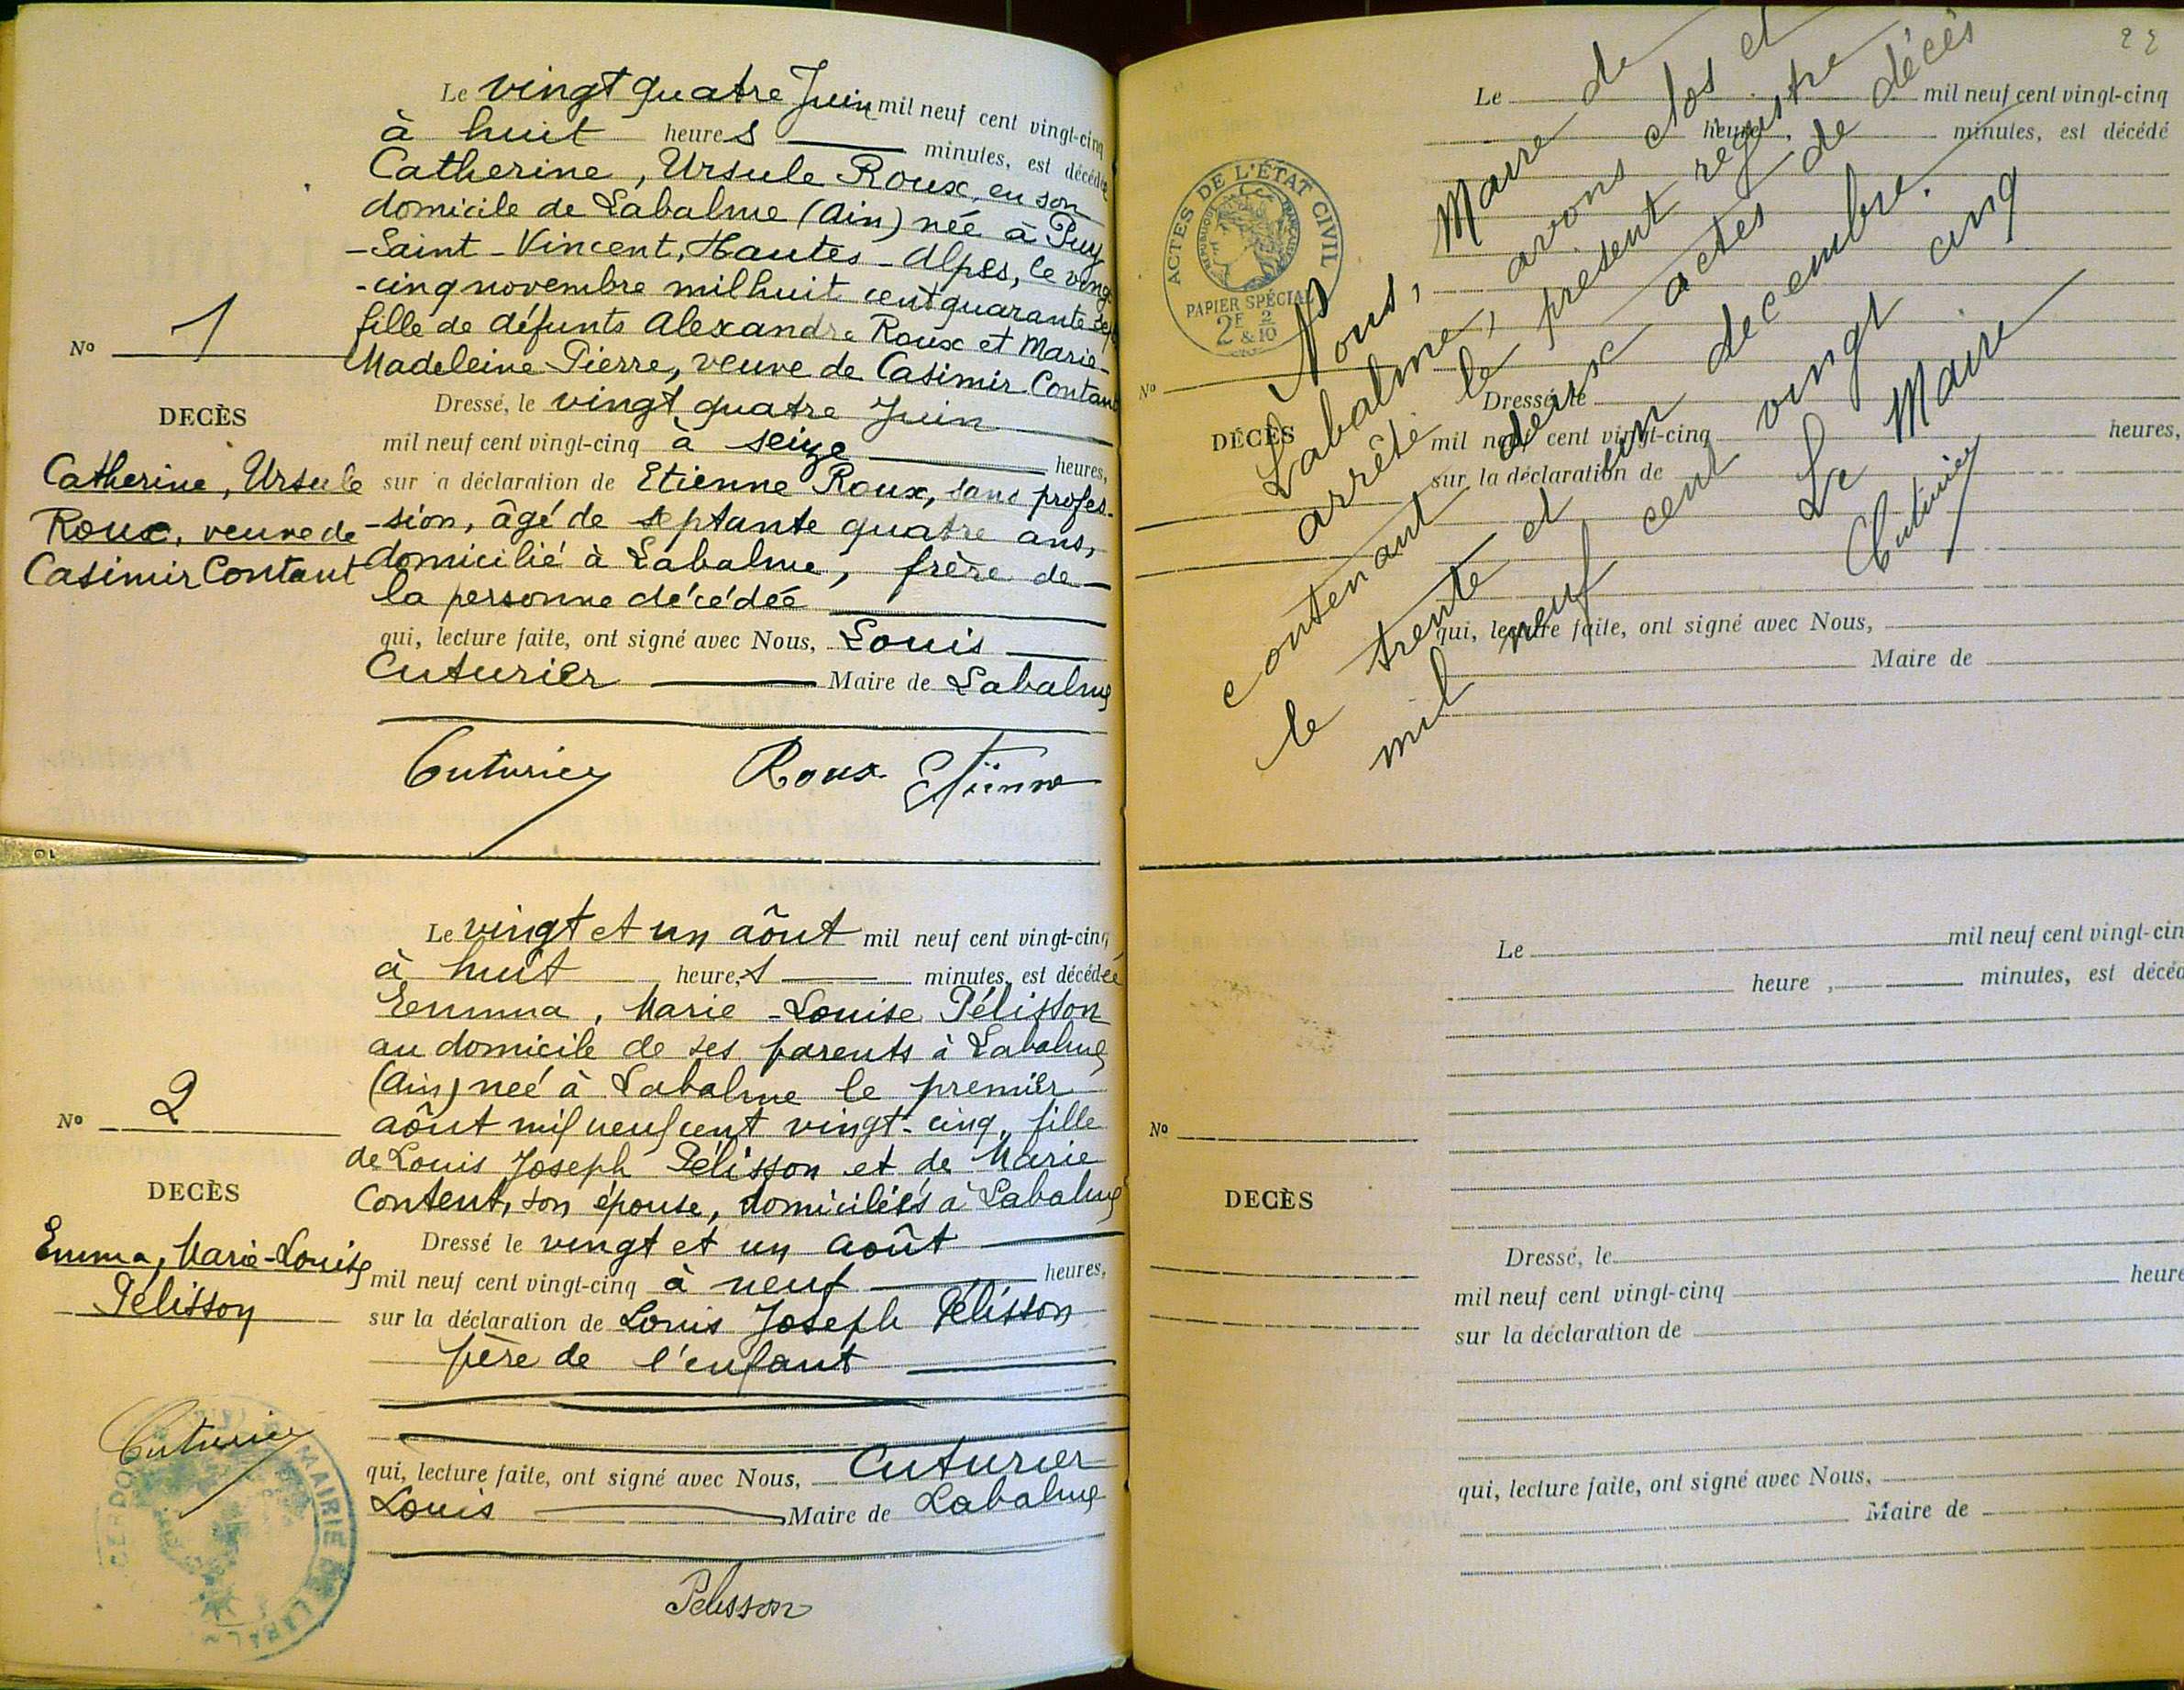 Le vingt quatre Juin mil neuf cent vingt-cinq
à huit heures minutes, est décédée
Catherine, Ursule Roux, en son
domicile de Labalme (Ain) née à Puy
-Saint-Vincent, Hautes-Alpes, le vingt
-cinq novembre mil huit cent quarante sept
fille de défunts Alexandre Roux et Marie-
Madeleine Pierre, veuve de Casimir Contant
Nº 1
DECÈS
Catherine, Ursule
Roux, veuve de
Casimir Contant
Dressé, le vingt quatre Juin
mil neuf cent vingt-cinq à seize heures,
sur a déclaration de Etienne Roux, sans profes-
-sion, âgé de septante quatre ans,
domicilié à Labalme, frère de
la personne décédée
qui, lecture faite, ont signé avec Nous, Louis
Cuturier Maire de Labalme
Cuturier Roux Etienne
Le vingt et un aôut mil neuf cent vingt-cinq
à huit heures minutes, est décédée
Emma, Marie-Louise Pélisson
au domicile de ses parents à Labalme
(Ain) neé à Labalme le premier
aôut mil neuf cent vingt-cinq, fille
de Louis Joseph Pélisson et de Marie
Content, son épouse, domiciliés à Labalme
Nº 2
DECÈS
Emma, Marie-Louise
Pélisson
Dressé le vingt et un août
mil neuf cent vingt-cinq à neuf heures,
sur la déclaration de Louis Joseph Pélisson
père de l'enfant
qui, lecture faite, ont signé avec Nous, Cuturier
Louis Maire de Labalme
Cuturier
MAIRIE DE LABAL
CERDO
Pelisson
22
ACTES DE L'ÉTAT CIVIL
RÉPUBLIQUE FRANÇAISE
PAPIER SPÉCIAL
2F & 2/10
Le mil neuf cent vingt-cinq
heure , minutes, est décédé
Nº
DÉCÈS
Dressé, le
mil neuf cent vingt-cinq heures,
sur la déclaration de
qui, lecture faite, ont signé avec Nous,
Maire de
Nous, Maire de
Labalme, avons clos et
arrêté le présent registre
contenant deux actes de décès
le trente et un décembre.
mil neuf cent vingt cinq
Le Maire
Cuturier
Le mil neuf cent vingt-cin
heure , minutes, est décéd
Nº
DECÈS
Dressé, le
mil neuf cent vingt-cinq heure
sur la déclaration de
qui, lecture faite, ont signé avec Nous,
Maire de